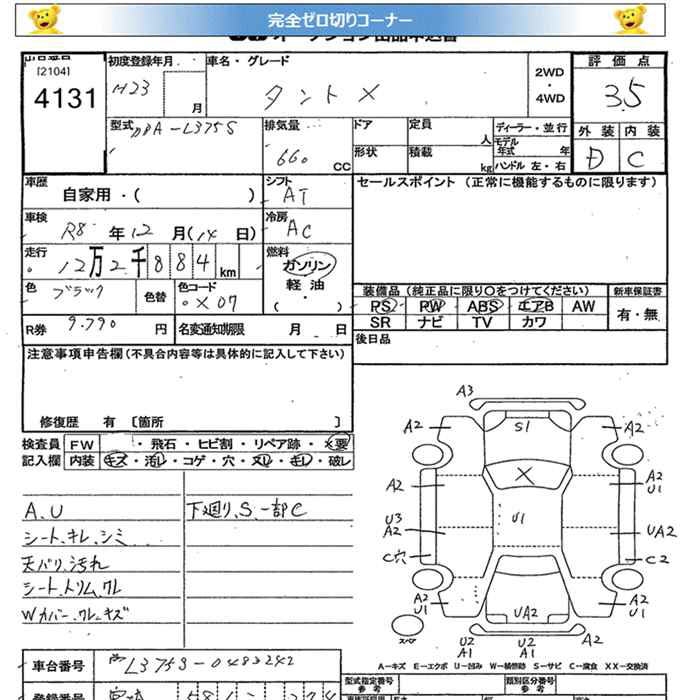 完全ゼロ切りコーナー
オークション出品申込書
出品番号
[2104]
4131
初度登録年月
H23
月
車名・グレード
タント X
2WD
・
4WD
評価点
3.5
型式
DBA-L375S
排気量
660
CC
ドア
定員
人
形状
積載
kg
ディーラー・並行
モデル年式
年
ハンドル 左・右
外装
内装
D
C
車歴
自家用・( )
シフト
AT
セールスポイント (正常に機能するものに限ります)
車検
R8年12月(14日)
冷房
AC
走行
12万2千884km
燃料
ガソリン
軽油
・
( )
色
ブラック
色替
色コード
X07
装備品 (純正品に限り○をつけてください)
新車保証書
PS PW ABS エアB AW
SR ナビ TV カワ
有・無
R券
9,790
円
名変通知期限
月
日
後日品
注意事項申告欄(不具合内容等は具体的に記入して下さい)
修復歴 有 〔箇所 〕
検査員記入欄
FW
・飛石・ヒビ割・リペア跡・×要
内装
キズ・汚レ・コゲ・穴・スレ・キレ・破レ
A、U
下廻り、S、一部C
シート、キレ、シミ
天バリ、汚れ
シート、トリム、クレ
Wカバー、クレ、キズ
A3
A2
S1
A2
A2
X
A2
U1
U3
A2
U1
UA2
C穴
C2
A2
U1
UA2
A2
U1
スペア
U2
A1
U2
A1
A2
A…キズ E…エクボ U…凹み W…補修跡 S…サビ C…腐食 XX…交換済
車台番号
L375S-0483242
型式指定番号
参考
類別区分番号
参考
登録番号
宮崎
581